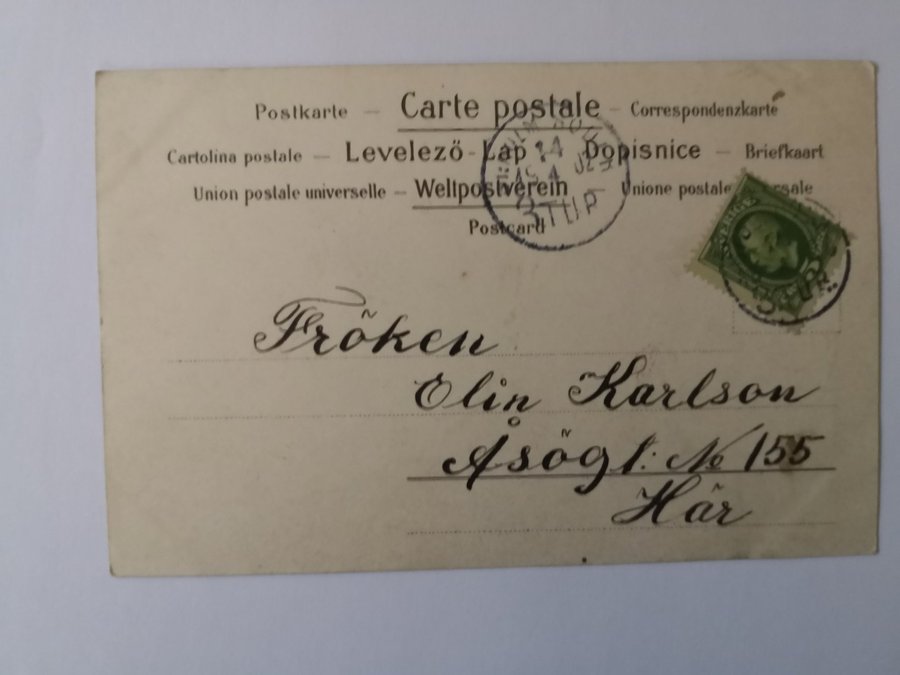 Postkarte — Carte postale — Correspondenzkarte
Cartolina postale — Levelező-Lap — Dopisnice — Briefkaart
Union postale universelle — Weltpostverein — Unione postale
Postcard
14
3 TUR
SVERIGE
Fröken
Elin Karlson
Åsögt: No 155
Här